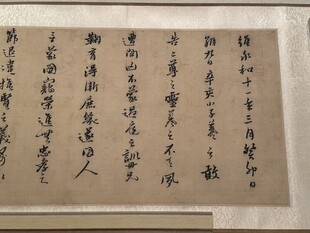 維永和十一年三月癸卯日
朔九日辛亥小子羲之敢
告二尊之靈羲之不天夙
遭閔凶不蒙過庭之訓母兄
鞠育得漸庶幾遂因人
乏蒙國寵榮進無忠孝之
節退違推賢之義每